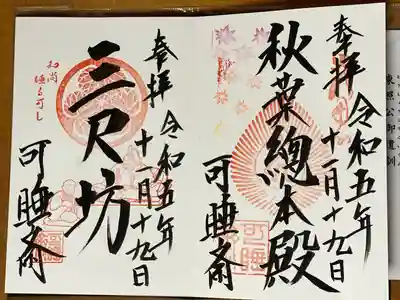 奉拝
令和五年
十一月十九日
秋葉總本殿
可睡斎
可睡
奉拝
令和五年
十一月十九日
三尺坊
和尚
睡る可し
可睡斎
東照公御遺訓